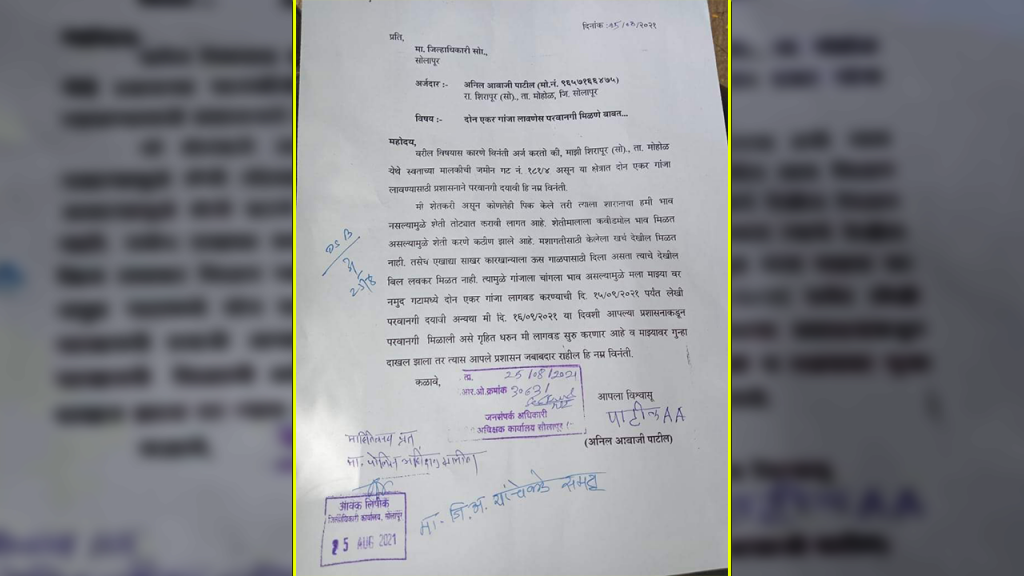 दिनांक :२५/०८/२०२१
प्रति,
मा. जिल्हाधिकारी सो।.,
सोलापूर
अर्जदार :- अनिल आबाजी पाटील (मो.नं. ९६५७१६६४७५)
रा. शिरापूर (सो)., ता. मोहोळ, जि. सोलापूर
विषय :- दोन एकर गांजा लावणेस परवानगी मिळणे बाबत...
महोदय,
वरील विषयास कारणे विनंती अर्ज करतो की, माझी शिरापूर (सो)., ता. मोहोळ
येथे स्वताच्या मालकीची जमीन गट नं. १८१/४ असून या क्षेत्रात दोन एकर गांजा
लावण्यासाठी प्रशासनाने परवानगी दयावी हि नम्र विनंती.
मी शेतकरी असून कोणतेही पिक केले तरी त्याला शासनाचा हमी भाव
नसल्यामुळे शेती तोट्यात करावी लागत आहे. शेतीमालाला कवडीमोल भाव मिळत
असल्यामुळे शेती करणे कठीण झाले आहे. मशागतीसाठी केलेला खर्च देखील मिळत
नाही. तसेच एखाद्या साखर कारखान्याला ऊस गाळपासाठी दिला असता त्याचे देखील
बिल लवकर मिळत नाही. त्यामुळे गांजाला चांगला भाव असल्यामुळे मला माझ्या वर
नमुद गटामध्ये दोन एकर गांजा लागवड करण्याची दि. १५/०९/२०२१ पर्यंत लेखी
परवानगी दयावी अन्यथा मी दि. १६/०९/२०२१ या दिवशी आपल्या प्रशासनाकडून
परवानगी मिळाली असे गृहित धरुन मी लागवड सुरु करणार आहे व माझ्यावर गुन्हा
दाखल झाला तर त्यास आपले प्रशासन जबाबदार राहील हि नम्र विनंती.
कळावे,
ता. 25/08/2021
आर.ओ.क्रमांक 3063/
जनसंपर्क अधिकारी
अधिक्षक कार्यालय सोलापूर
आपला विश्वासू
पाटील AA
(अनिल आबाजी पाटील)
माहितीस्तव प्रत,
मा. पोलिस अधिक्षक ग्रामीण
आवक लिपीक
जिल्हाधिकारी कार्यालय, सोलापूर
25 AUG 2021
मा. जि.अ. यांचेकडे समक्ष